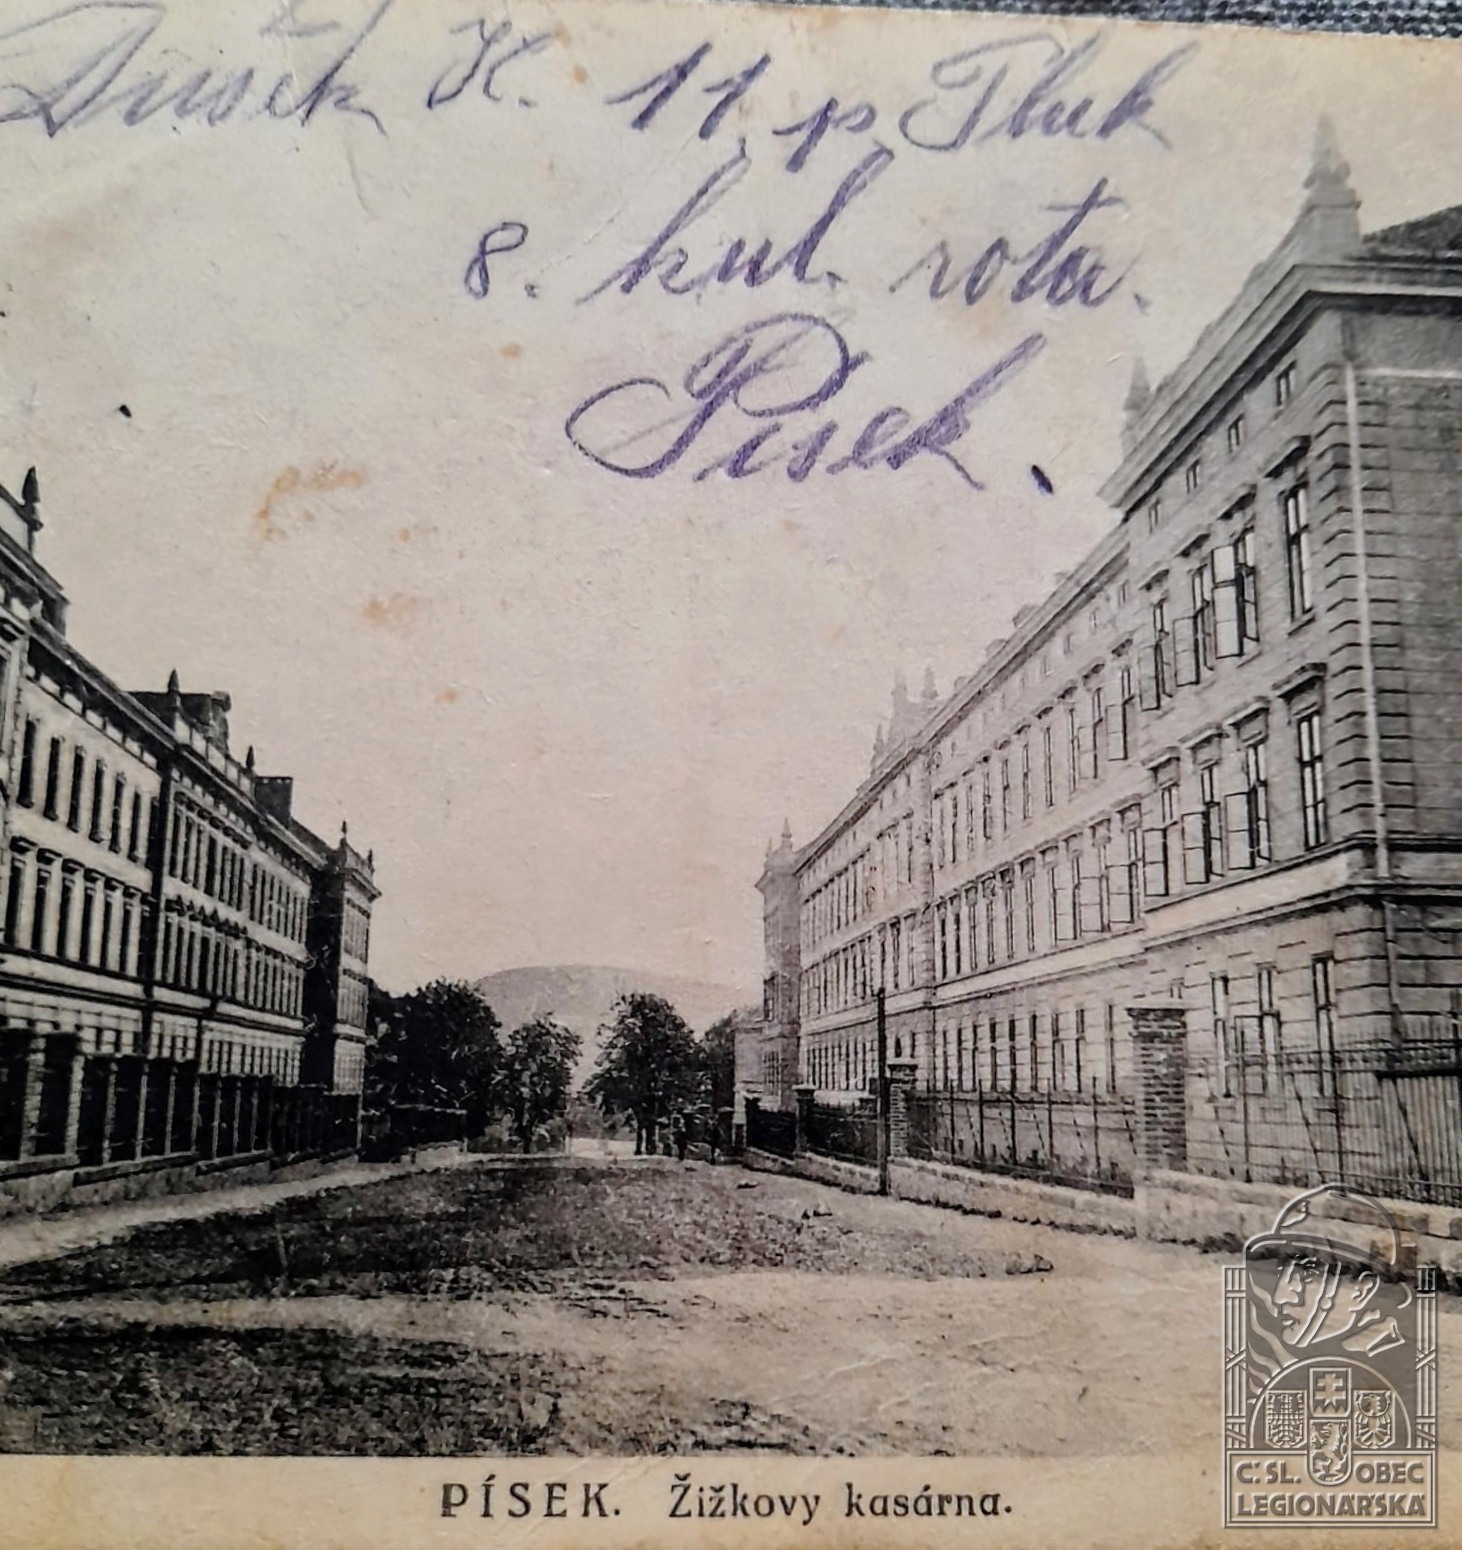 Dušek K. 11. p. Pluk
8. kul. rota.
Písek.
PÍSEK. Žižkovy kasárna.
ČSL. OBEC
LEGIONÁŘSKÁ